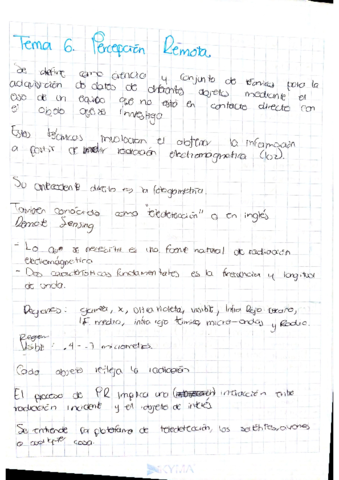 Tema 6. Percepción Remota.
Se define como ciencia y conjunto de técnicas para la
adquisición de datos de diferentes objetos mediante el
uso de un equipo que no está en contacto directo con
el objeto que se investiga.
Estas técnicas involucran el obtener la información
a partir de medir radiación electromagnética (luz).
Su antecedente directo es la fotogrametría.
También conocida como "teledetección" o en inglés
Remote Sensing
- Lo que se necesita es una fuente natural de radiación
electromagnética
- Dos características fundamentales es la frecuencia y longitud
de onda.
Regiones: gamma, x, ultravioleta, visible, Infra Rojo cercano,
IF medio, infra rojo térmico, micro-ondas y Radio.
Region
Visible = .4 - .7 micrometros
Cada objeto refleja la radiación
El proceso de PR implica una interacción ante
radiación incident y el objeto de interés.
Se entiende la plataforma de teledetección, los satélites, aviones
o cosa.